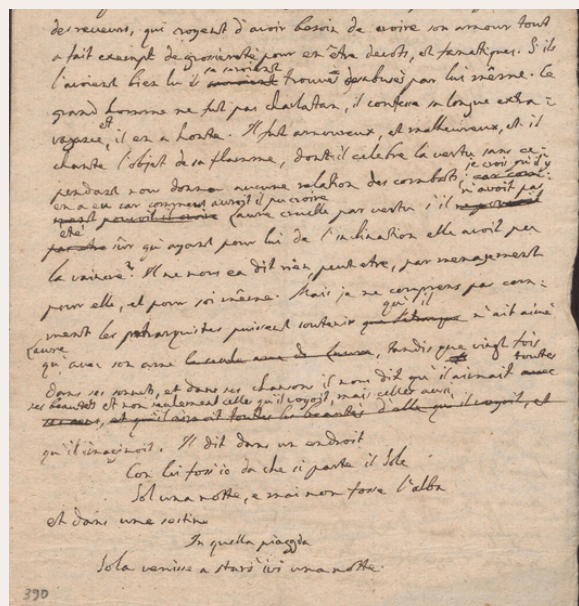 des reveurs, qui croyent d'avoir besoin de croire son amour tout
a fait exempt de grossiereté pour en être devots, et fanatiques. S'ils
l'avoient bien lu ils se seroient trouvés desabusés par lui même. Ce
grand homme ne fut pas charlatan, il confesse sa longue extra=
vagance, et il en a honte. Il fut amoureux, et malheureux, et il
chante l'objet de sa flamme, dont il celebre la vertu sans ce=
pendant nous donner aucune relation des combats; je crois qu'il y
n'avoit pas
en a eu car comment auroit il pu croire Laure cruelle par vertu s'il
été sûr qu'ayant pour lui de l'inclination elle avoit pu
la vaincre? Il ne nous en dit rien, peut etre, par menagement
pour elle, et pour soi même. Mais je ne comprens pas com=
ment les petrarquistes puissent soutenir qu'il n'ait aimé
Laure
qu'avec son ame, tandis que vingt fois
dans ses sonnets, et dans ses chansons il nous dit qu'il aimait toutes
ses beautés et non seulement celles qu'il voyoit, mais celles aussi
qu'il imaginoit. Il dit dans un endroit
Con lei foss'io da che si parte il Sole
Sol una notte, e mai non fosse l'alba
et dans une sestine
In quella piaggia
Sola venisse a starsi ivi una notte.
390